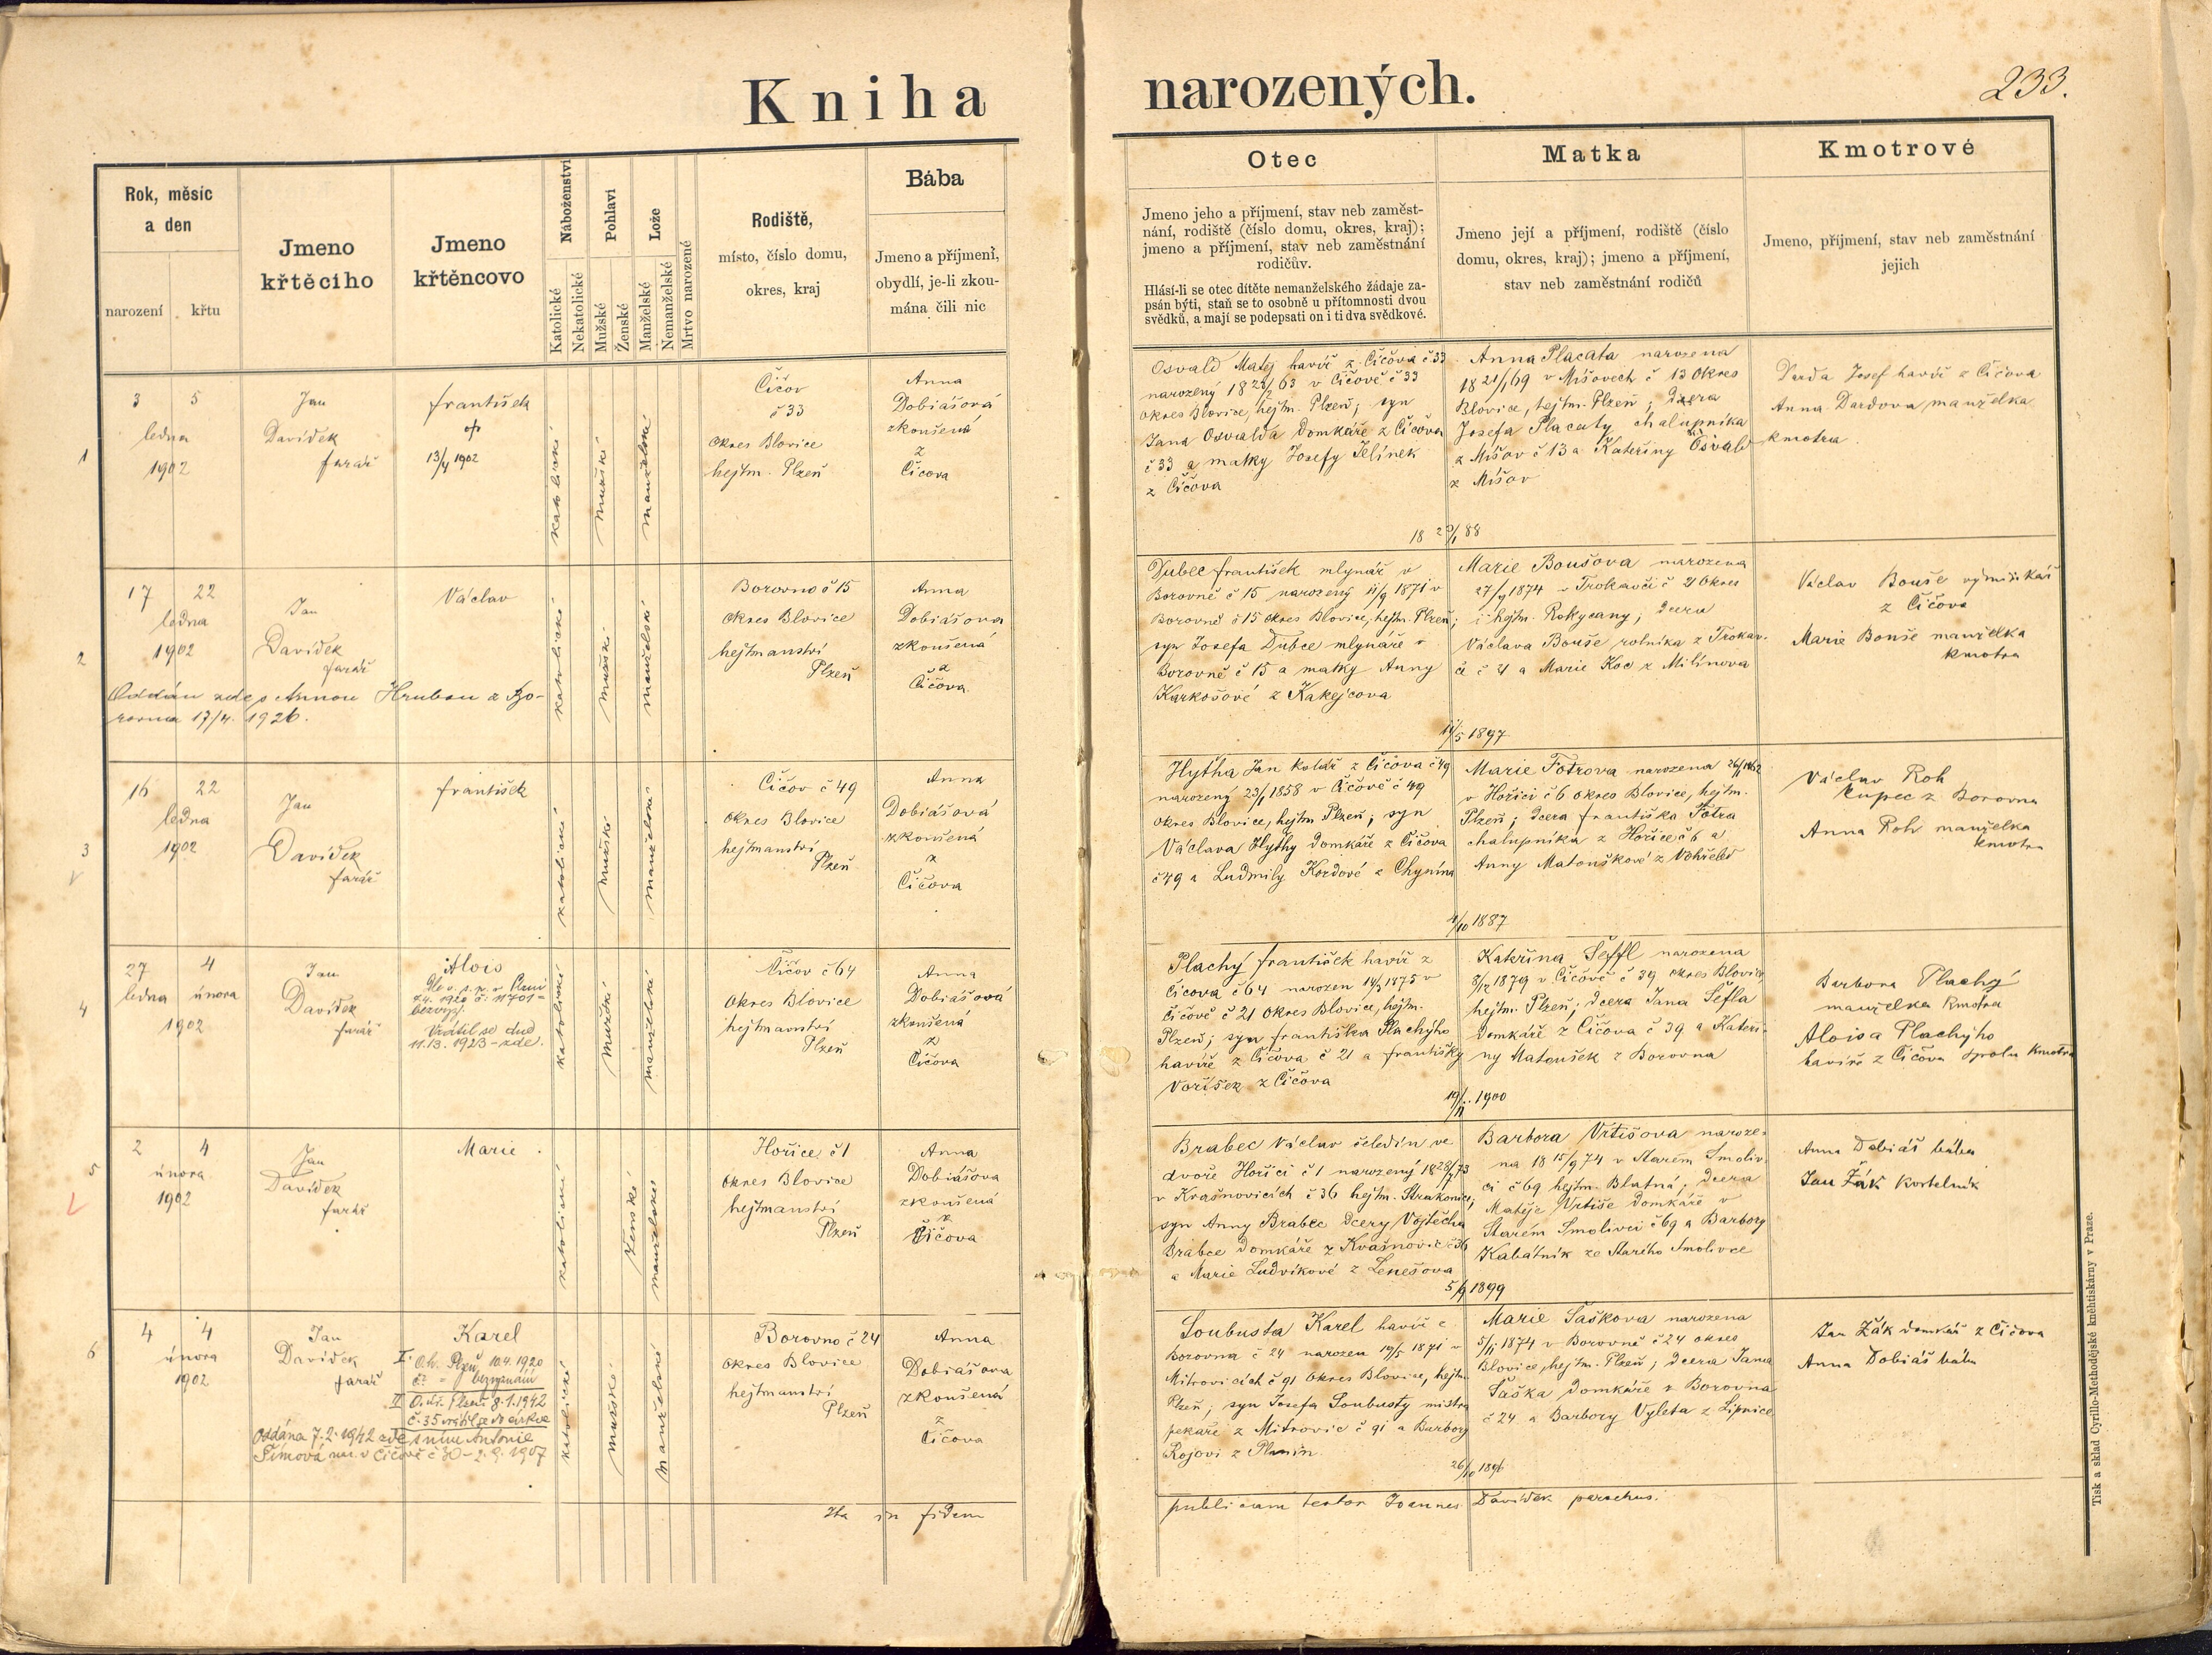 Kniha narozených.
233.
Rok, měsíc
a den
narození
křtu
Jmeno
křtěcího
Jmeno
křtěncovo
Náboženství
Katolické
Nekatolické
Pohlaví
Mužské
Ženské
Lože
Manželské
Nemanželské
Mrtvo narozené
Rodiště,
místo, číslo domu,
okres, kraj
Bába
Jmeno a příjmení,
obydlí, je-li zkou-
mána čili nic
Otec
Jmeno jeho a příjmení, stav neb zaměst-
nání, rodiště (číslo domu, okres, kraj);
jmeno a příjmení, stav neb zaměstnání
rodičův.
Hlásí-li se otec dítěte nemanželského žádaje za-
psán býti, staň se to osobně u přítomnosti dvou
svědků, a mají se podepsati on i ti dva svědkové.
Matka
Jmeno její a příjmení, rodiště (číslo
domu, okres, kraj); jmeno a příjmení,
stav neb zaměstnání rodičů
Kmotrové
Jmeno, příjmení, stav neb zaměstnání
jejich
1
3 5
ledna
1902
Jan
Davídek
farář
František
13/4 1902
katolické
mužské
manželské
Čičov
č 33
okres Blovice
hejtm. Plzeň
Anna
Dobiášová
zkoušená
z
Čičova
Osvald Matěj havíř z Čičova č 33
narozený 18 /2 63 v Čičově č 33
okres Blovice, hejtm. Plzeň; syn
Jana Osvalda domkáře z Čičova
č 33 a matky Josefy Jelínek
z Čičova
Anna Placata narozena
18 21/1 69 v Mišovech č 13 okres
Blovice, hejtm. Plzeň; dcera
Josefa Placaty chalupníka
z Mišov č 13 a Kateřiny Osvald
z Mišov
Darda Josef havíř z Čičova
Anna Dardova manželka
kmotra
88
2
17 22
ledna
1902
Jan
Davídek
farář
Václav
Oddán zde s Annou Hrubou z Bo-
rovna 17/4. 1926.
katolické
mužské
manželské
Borovno č 15
okres Blovice
hejtmanství
Plzeň
Anna
Dobiášova
zkoušená
z
Čičova
Dubec František mlynář v
Borovně č 15 narozený 11/9 1871 v
Borovně č 15 okres Blovice, hejtm. Plzeň;
syn Josefa Dubce mlynáře v
Borovně č 15 a matky Anny
Karkošové z Kakejcova
Marie Boušova narozena
27/9 1874 v Trokavči č 21 okres
i hejtm. Rokycany; dcera
Václava Bouše rolníka z Trokav-
če č 21 a Marie Koc z Milínova
Václav Bouše výminkář
z Čičova
Marie Bouše manželka
kmotra
11/5 1897
3
16 22
ledna
1902
Jan
Davídek
farář
František
katolické
mužské
manželské
Čičov č 49
okres Blovice
hejtmanství
Plzeň
Anna
Dobiášová
zkoušená
z
Čičova
Hytha Jan kolář z Čičova č 49
narozený 23/1 1858 v Čičově č 49
okres Blovice, hejtm Plzeň; syn
Václava Hythy domkáře z Čičova
č 49 a Ludmily Kordové z Chynína
Marie Fotrova narozena 26/1 1862
v Hořici č 6 okres Blovice, hejtm.
Plzeň; dcera Františka Fotra
chalupníka z Hořice č 6 a
Anny Matouškové z Vohřeled
Václav Roh
kupec z Borovna
Anna Roh manželka
kmotra
4/10 1887
4
27 4
ledna února
1902
Jan
Davídek
farář
Alois
7.4. 1920 č: 11701 =
bezvyz.
Vrátil se dne
11.13. 1923 - zde.
katolické
mužské
manželské
Čičov č 64
okres Blovice
hejtmanství
Plzeň
Anna
Dobiášová
zkoušená
z
Čičova
Plachý František havíř z
Čičova č 64 narozen 14/3 1875 v
Čičově č 21 okres Blovice, hejtm.
Plzeň; syn Františka Plachýho
havíře z Čičova č 21 a Františky
Voříšek z Čičova
Kateřina Šeffl narozena
8/12 1879 v Čičově č 39 okres Blovice,
hejtm. Plzeň; dcera Jana Šefla
domkáře z Čičova č 39 a Kateři-
ny Matoušek z Borovna
Barbora Plachý
manželka kmotra
Aloisa Plachýho
havíře z Čičova spolu kmotra
19/11. 1900
5
2 4
února
1902
Jan
Davídek
farář
Marie
katolické
ženské
manželské
Hořice č 1
okres Blovice
hejtmanství
Plzeň
Anna
Dobiášova
zkoušená
z
Čičova
Brabec Václav čeledín ve
dvoře Hořici č 1 narozený 18 28/7 73
v Krašnovicích č 36 hejtm. Strakonice;
syn Anny Brabec dcery Vojtěcha
Brabce domkáře z Kvašňovic č 36
a Marie Ludvíkové z Lenešova
Barbora Vrtišova naroze-
na 18 15/9 74 v Starém Smoliv-
ci č 69 hejtm. Blatná; dcera
Matěje Vrtiše domkáře v
Starém Smolivci č 69 a Barbory
Kabátník ze Starého Smolivce
Anna Dobiáš bába
Jan Žák kostelník
5/9 1899
6
4 4
února
1902
Jan
Davídek
farář
Karel
I. O.h. Plzeň 10.4.1920
bezvyznání
II Plzeň 8.1.1942
č. 35 vrátil se do církve
Oddána 7.2.1942 zde s ním Antonie
Šímová nar. v Čičově č 30 - 2.9.1907
katolické
mužské
manželské
Borovno č 24
okres Blovice
hejtmanství
Plzeň
Anna
Dobiášova
zkoušená
z
Čičova
Soubusta Karel havíř z
Borovna č 24 narozen 19/5 1871 v
Mitrovicích č 91 okres Blovice, hejtm
Plzeň; syn Josefa Soubusty mistra
pekaře z Mitrovic č 91 a Barbory
Rojovi z Planin
Marie Šaškova narozena
5/1 1874 v Borovně č 24 okres
Blovice, hejtm. Plzeň; dcera Jana
Šaška domkáře z Borovna
č 24 a Barbory Vyleta z Lipnice
Jan Žák domkář z Čičova
Anna Dobiáš bába
26/10 1896
Ita in fidem
publicam testor Joannes Davídek parochus.
Tisk a sklad Cyrillo-Methodějské knihtiskárny v Praze.